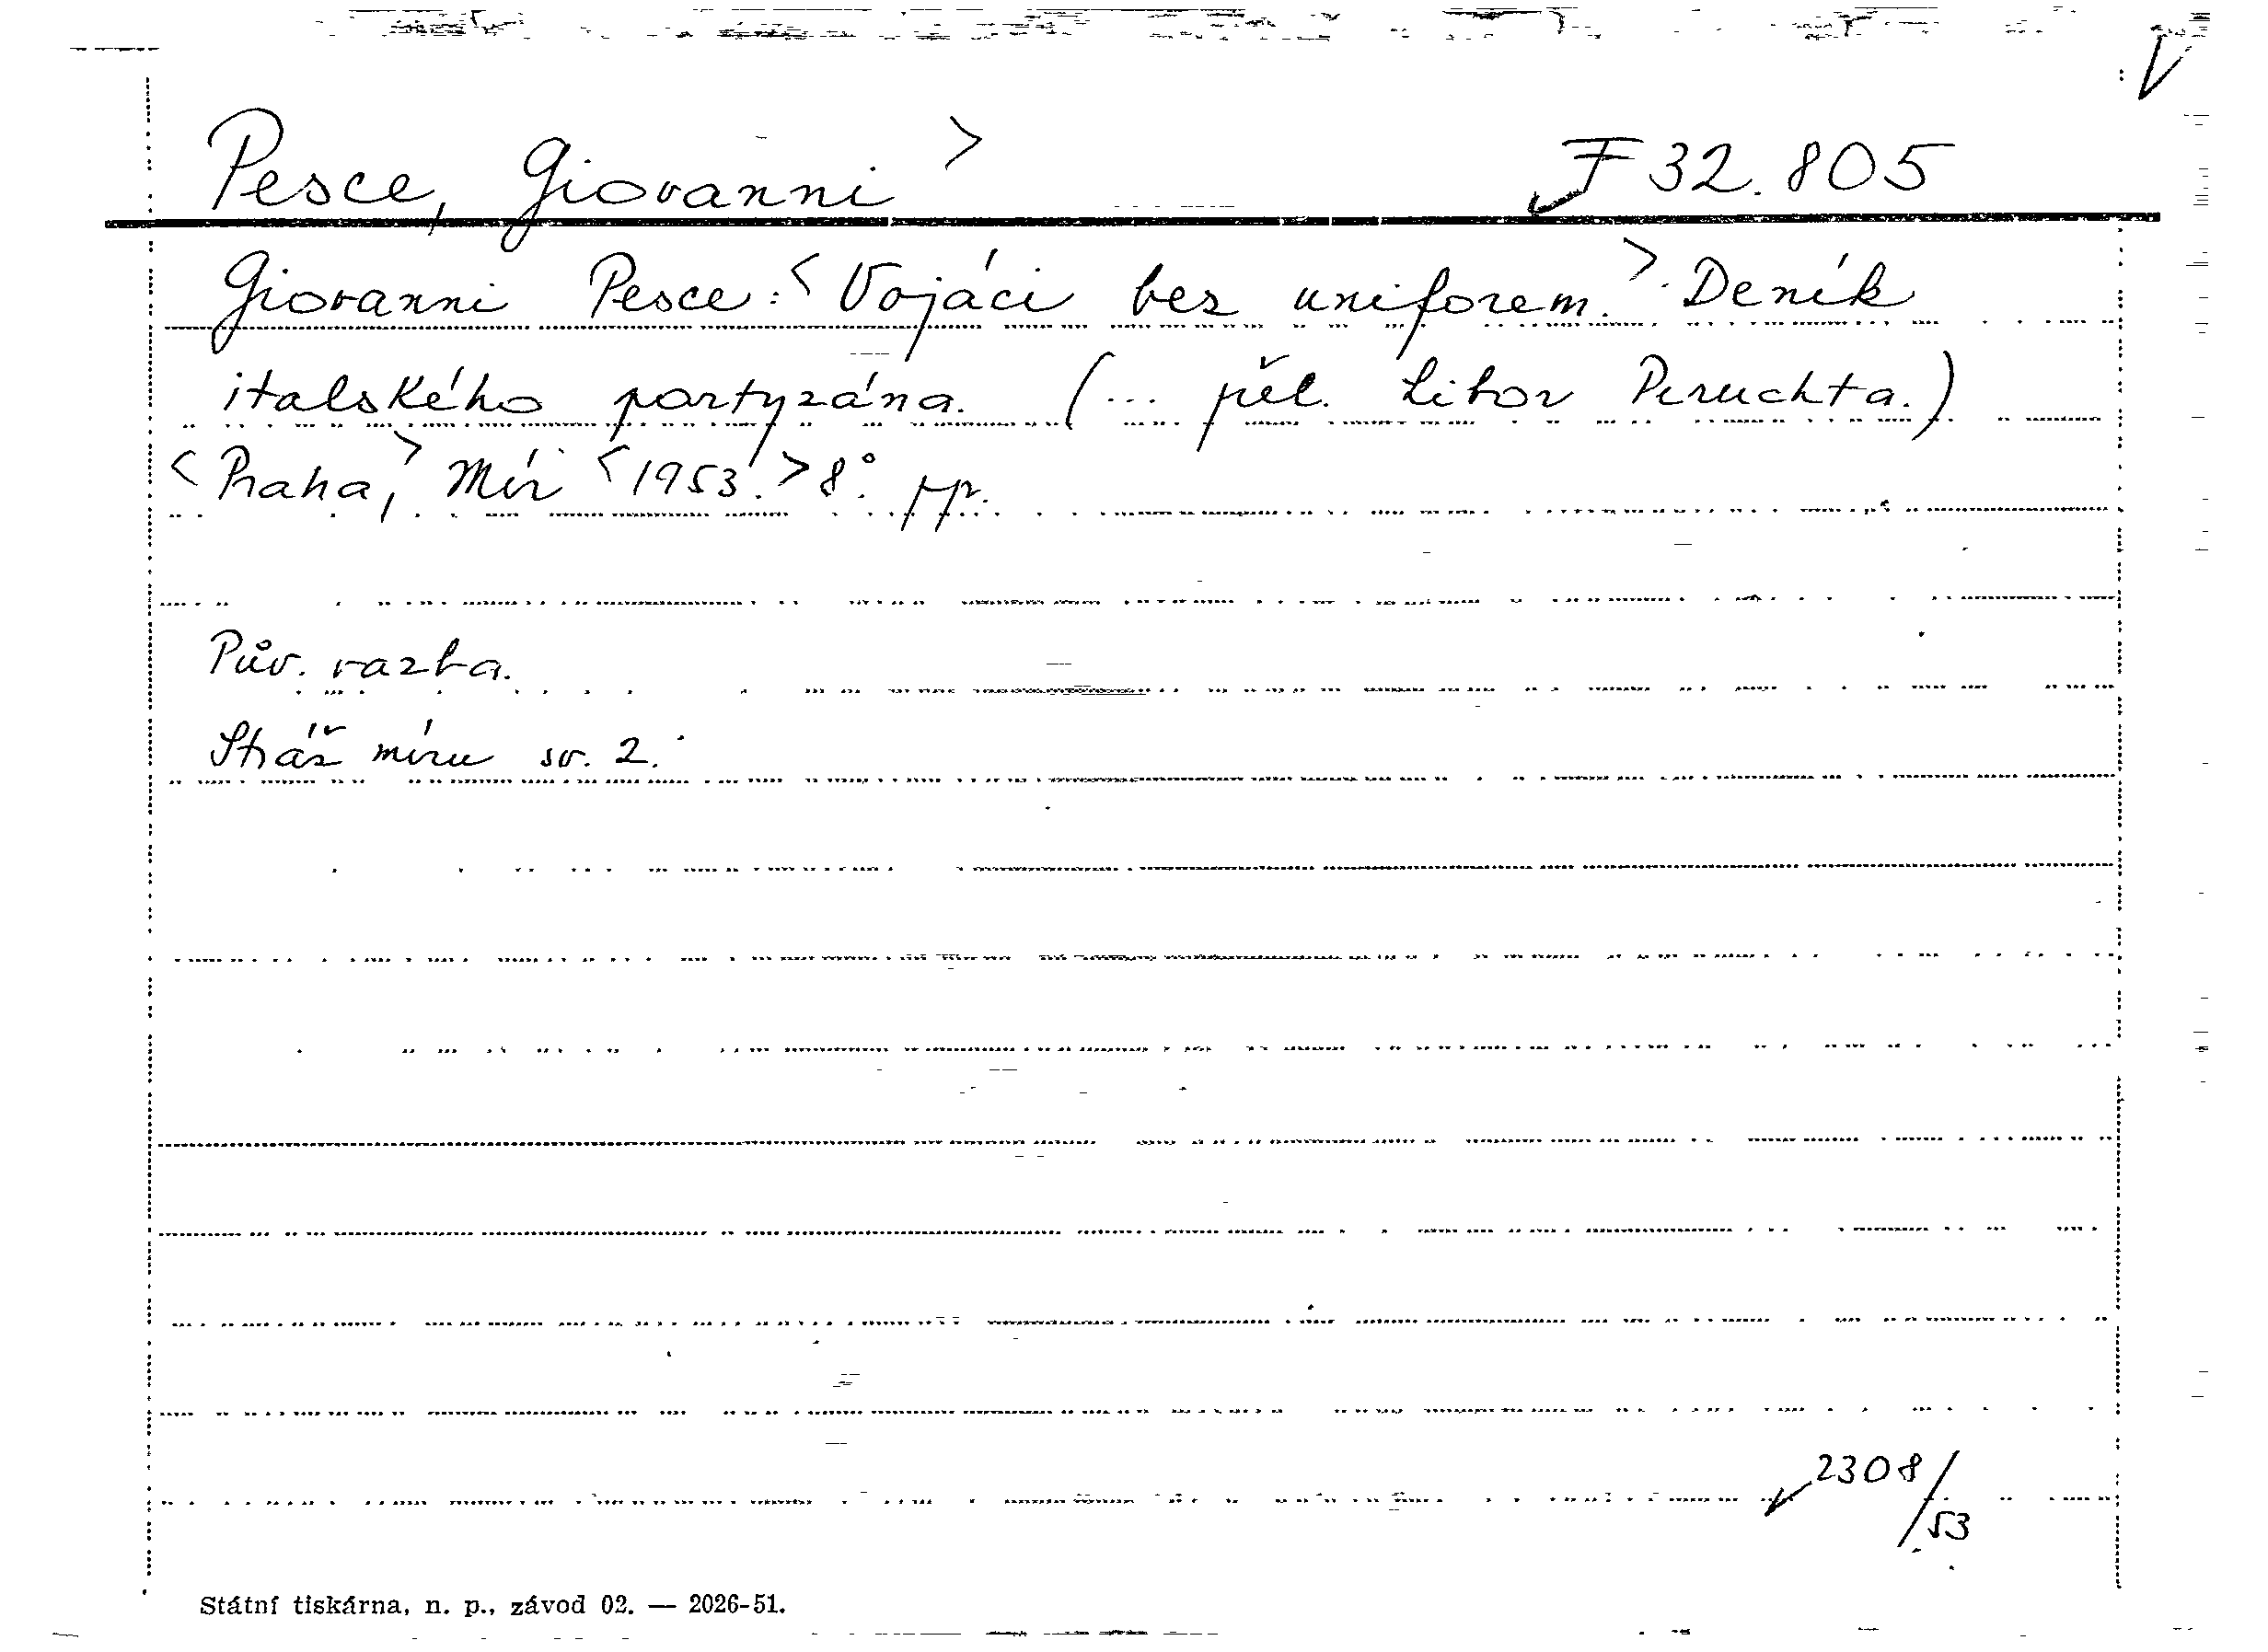 V
Pesce, Giovanni > F 32.805
Giovanni Pesce: < Vojáci bez uniforem. > Deník
italského partyzána. (... přel. Libor Peruchta.)
< Praha, > Mír < 1953. > 8°. pp.
Pův. vazba.
Stráž míru sv. 2.
2308/53
Státní tiskárna, n. p., závod 02. — 2026-51.